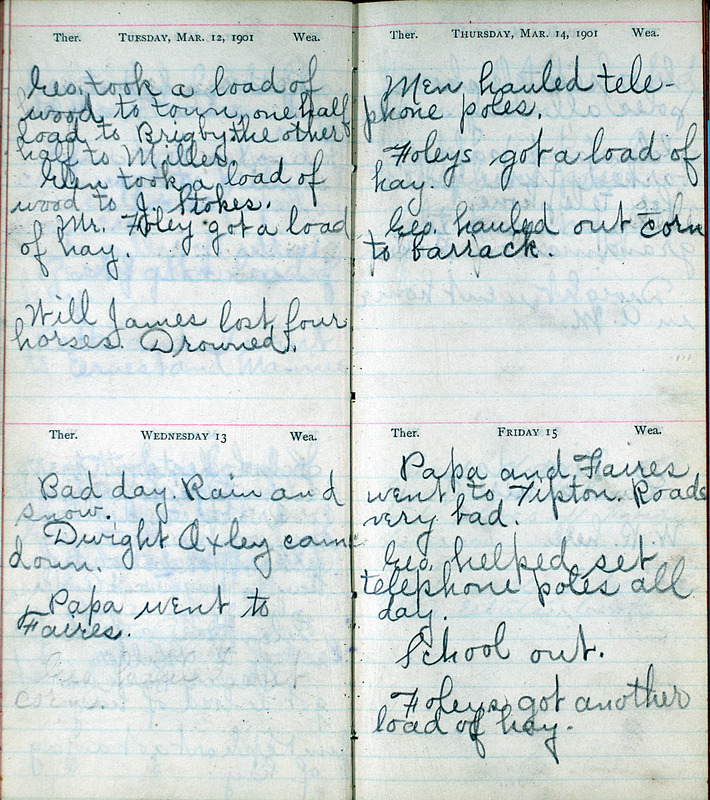 Ther. TUESDAY, MAR. 12, 1901 Wea.
Geo. took a load of
wood to town, one half
load to Brigby the other
half to Miller.
took a load of
wood to J. Stokes.
Mr. Foley got a load
of hay.
Will James lost four
horses. Drowned.
Ther. WEDNESDAY 13 Wea.
Bad day. Rain and
snow.
Dwight Axley came
down.
Papa went to
Faires.
Ther. THURSDAY, MAR. 14, 1901 Wea.
Men hauled tele-
phone poles.
Foleys got a load of
hay.
Geo. hauled out corn
to barrack.
Ther. FRIDAY 15 Wea.
Papa and Faires
went to Tipton. Roads
very bad.
Geo. helped set
telephone poles all
day.
School out.
Foleys got another
load of hay.